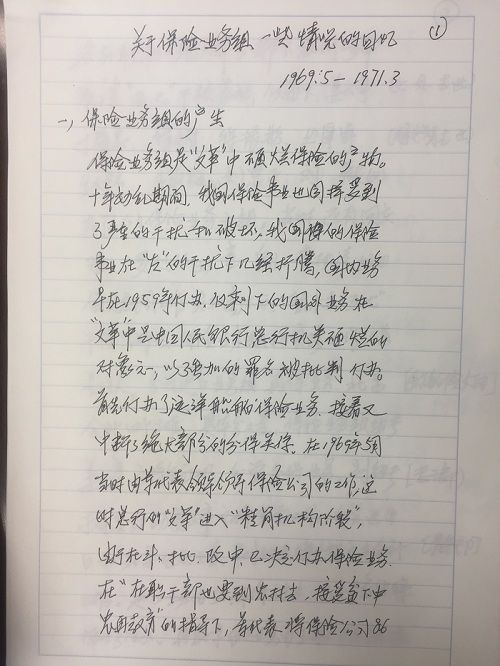 ①
关于保险业务组一些情况的回忆
1969.5—1971.3
一、保险业务组的产生
保险业务组是“文革”中砸烂保险的产物。
十年动乱期间，我国保险事业也同样受到
了严重的干扰和破坏。我国的保险
事业在“左”的干扰下几经折腾，国内业务
早在1959年停办，仅剩下的国外业务在
“文革”中是中国人民银行总行机关砸烂的
对象之一，以强加的罪名被批判停办。
首先停办了远洋船舶保险业务，接着又
中断了绝大部份的分保关系。在1969年5月
当时由军代表领导保险公司的工作，这
时总行的“文革”进入“精简机构阶段”，
由于在斗、批、改中，已决定停办保险业务，
在“在职干部也要到农村去，接受贫下中
农再教育”的指导下，军代表将保险公司86